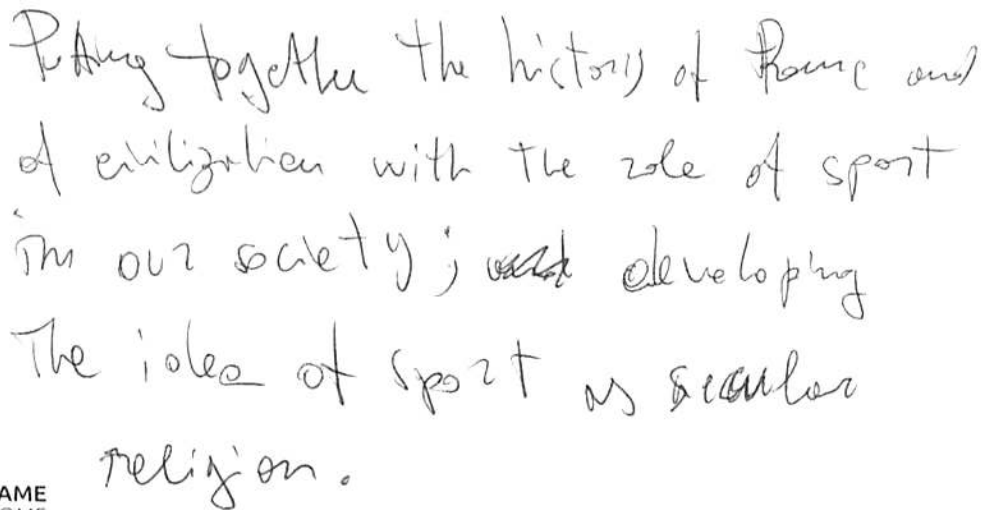 Putting together the history of Rome and
of civilization with the role of sport
in our society; developing
the idea of sport as secular
religion.
AME